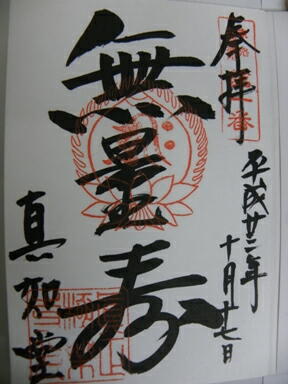 奉拝
平成廿二年
十月十七日
無量寿
真如堂